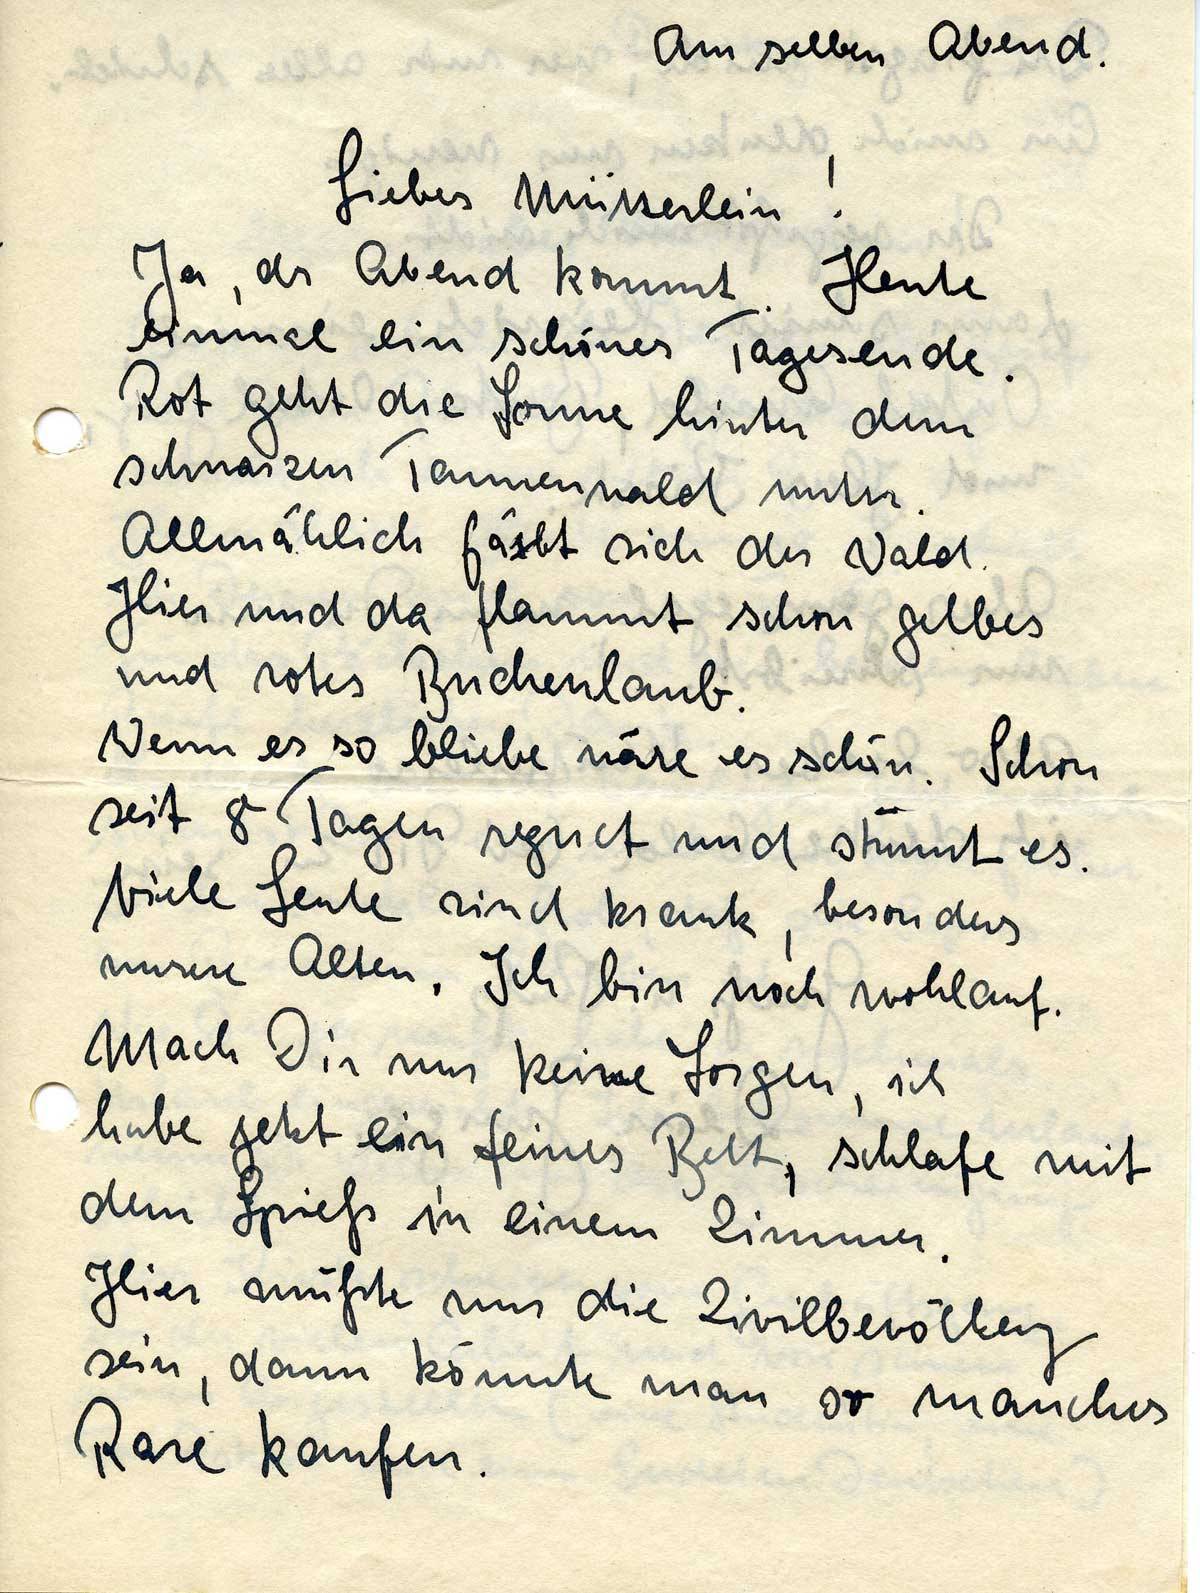 Am selben Abend.
Liebes Mütterlein!
Ja, der Abend kommt. Heute
einmal ein schönes Tagesende.
Rot geht die Sonne hinter dem
schwarzen Tannenwald unter.
Allmählich färbt sich der Wald.
Hier und da flammt schon gelbes
und rotes Buchenlaub.
Wenn es so bliebe wäre es schön. Schon
seit 8 Tagen regnet und stürmt es.
Viele Leute sind krank, besonders
unsere Alten. Ich bin noch wohlauf.
Mach Dir nur keine Sorgen, ich
habe jetzt ein feines Bett, schlafe mit
dem Spieß in einem Zimmer.
Hier müßte nur die Zivilbevölkerg
sein, dann könnte man so manches
Rare kaufen.